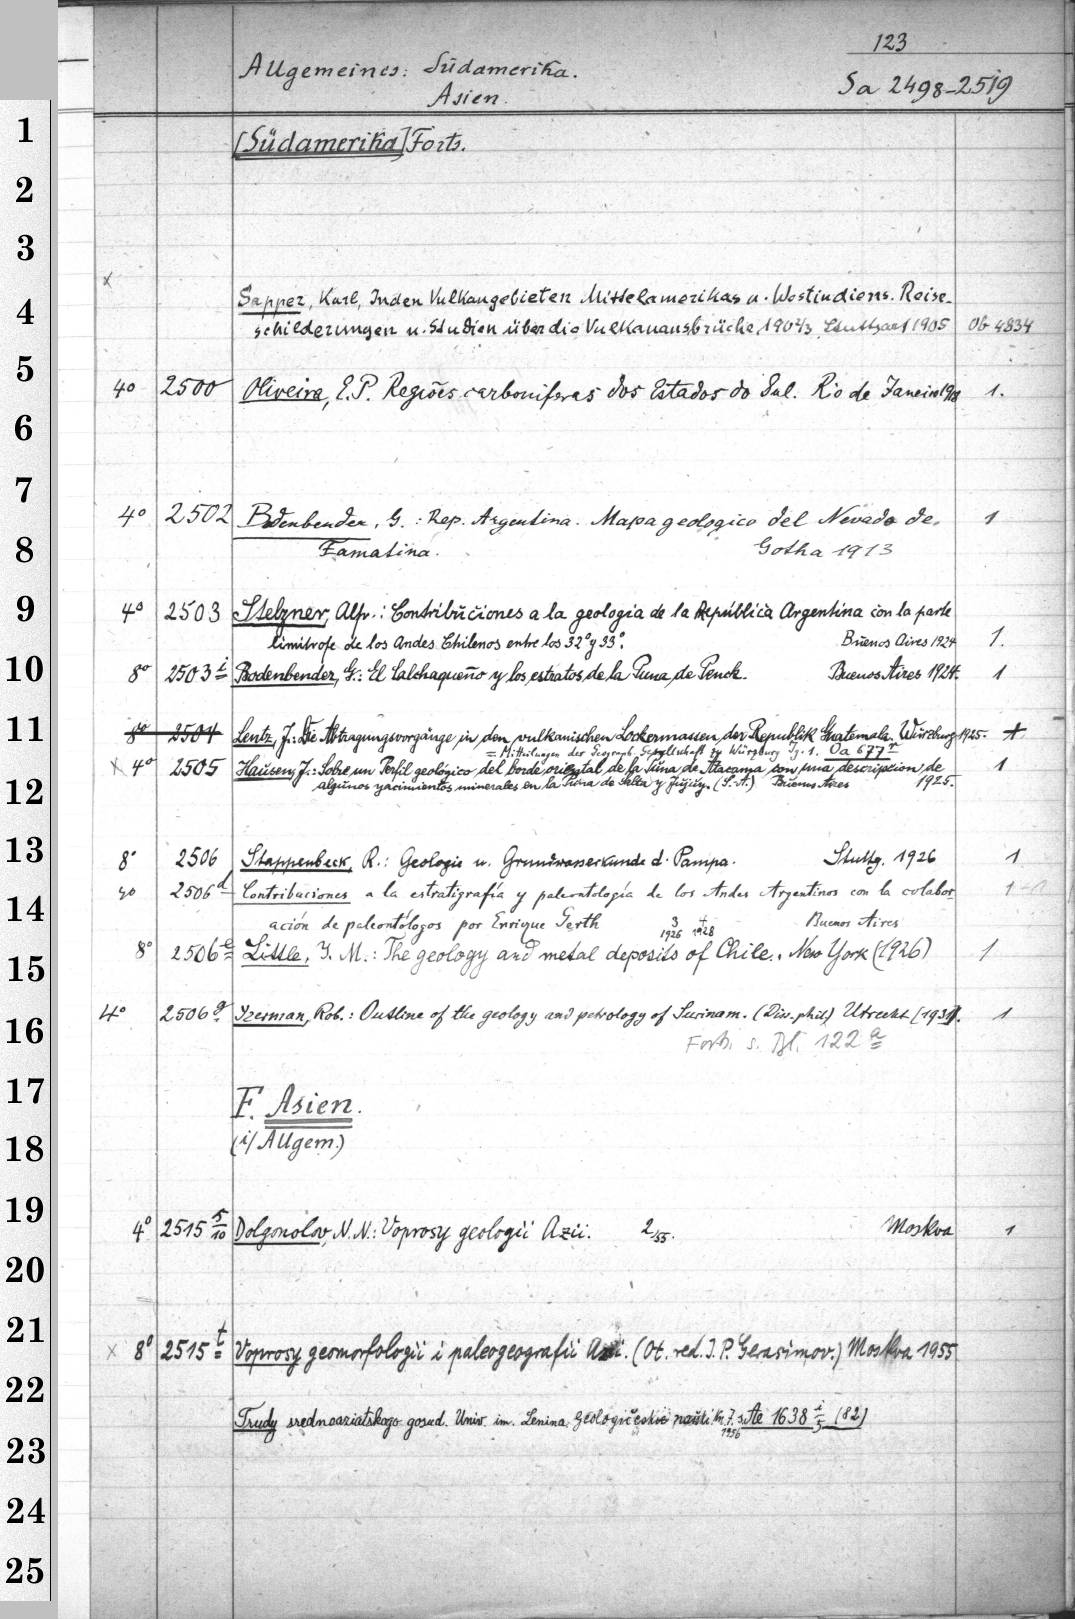 123
Allgemeines: Südamerika.
Sa 2498-2519
Asien.
1
[Südamerika] Forts.
2
3
x
Sapper, Karl, In den Vulkangebieten Mittelamerikas u. Westindiens. Reise-
4
schilderungen u. Studien über die Vulkanausbrüche 1902/3 Stuttgart 1905 Ob 4834
5
4° 2500 Oliveira, E.P. Regiões carboniferas dos Estados do Sul. Rio de Janeiro 1918 1.
6
7
4° 2502 Bodenbender, G.: Rep. Argentina. Mapa geologico del Nevado de 1
8
Famatina. Gotha 1913
9
4° 2503 Stelzner, Alfr.: Contribuciones a la geologia de la República Argentina con la parte
limitrofe de los Andes Chilenos entre los 32° y 33°. Buenos Aires 1924 1.
10
8° 2503 i Bodenbender, G.: El Calchaqueño y los estratos de la Puna de Penck. Buenos Aires 1924. 1
11
8° 2504 Lentz, J.: Die Abtragungsvorgänge in den vulkanischen Lockermassen der Republik Guatemala. Würzburg 1925. 1
= Mitteilungen der Geograph. Gesellschaft zu Würzburg Jg. 1. Oa 677 r
x 4° 2505 Hausen, J.: Sobre un Perfil geológico del borde oriental de la Puna de Atacama con una descripcion de 1
12
algunos yacimientos minerales en la Puna de Salta y Jujuy. (S.A.) Buenos Aires 1925.
13
8° 2506 Stappenbeck, R.: Geologie u. Grundwasserkunde d. Pampa. Stuttg. 1926 1
4° 2506 d Contribuciones a la estratigrafía y paleontología de los Andes Argentinos con la colabor- 1
14
ación de paleontólogos por Enrique Gerth 3 1926 1928 Buenos Aires
15
8° 2506 e Little, J. M.: The geology and metal deposits of Chile. New York (1926) 1
16
4° 2506 g Izerman, Rob.: Outline of the geology and petrology of Surinam. (Diss. phil.) Utrecht (1931). 1
Forts. s. Bl. 122 a
17
F. Asien.
18
(i/ Allgem.)
19
4° 2515 5/10 Dolgopolov, N.N.: Voprosy geologii Azii. 2/55. Moskva 1
20
21
x 8° 2515 t Voprosy geomorfologii i paleogeografii Azii. (Ot. red. I.P. Gerasimov.) Moskva 1955
22
Trudy sredneaziatskogo gosud. Univ. im. Lenina. Geologičeskie nauki. Kn. 7. s. Ae 1638 i/5 (82)
1956
23
24
25